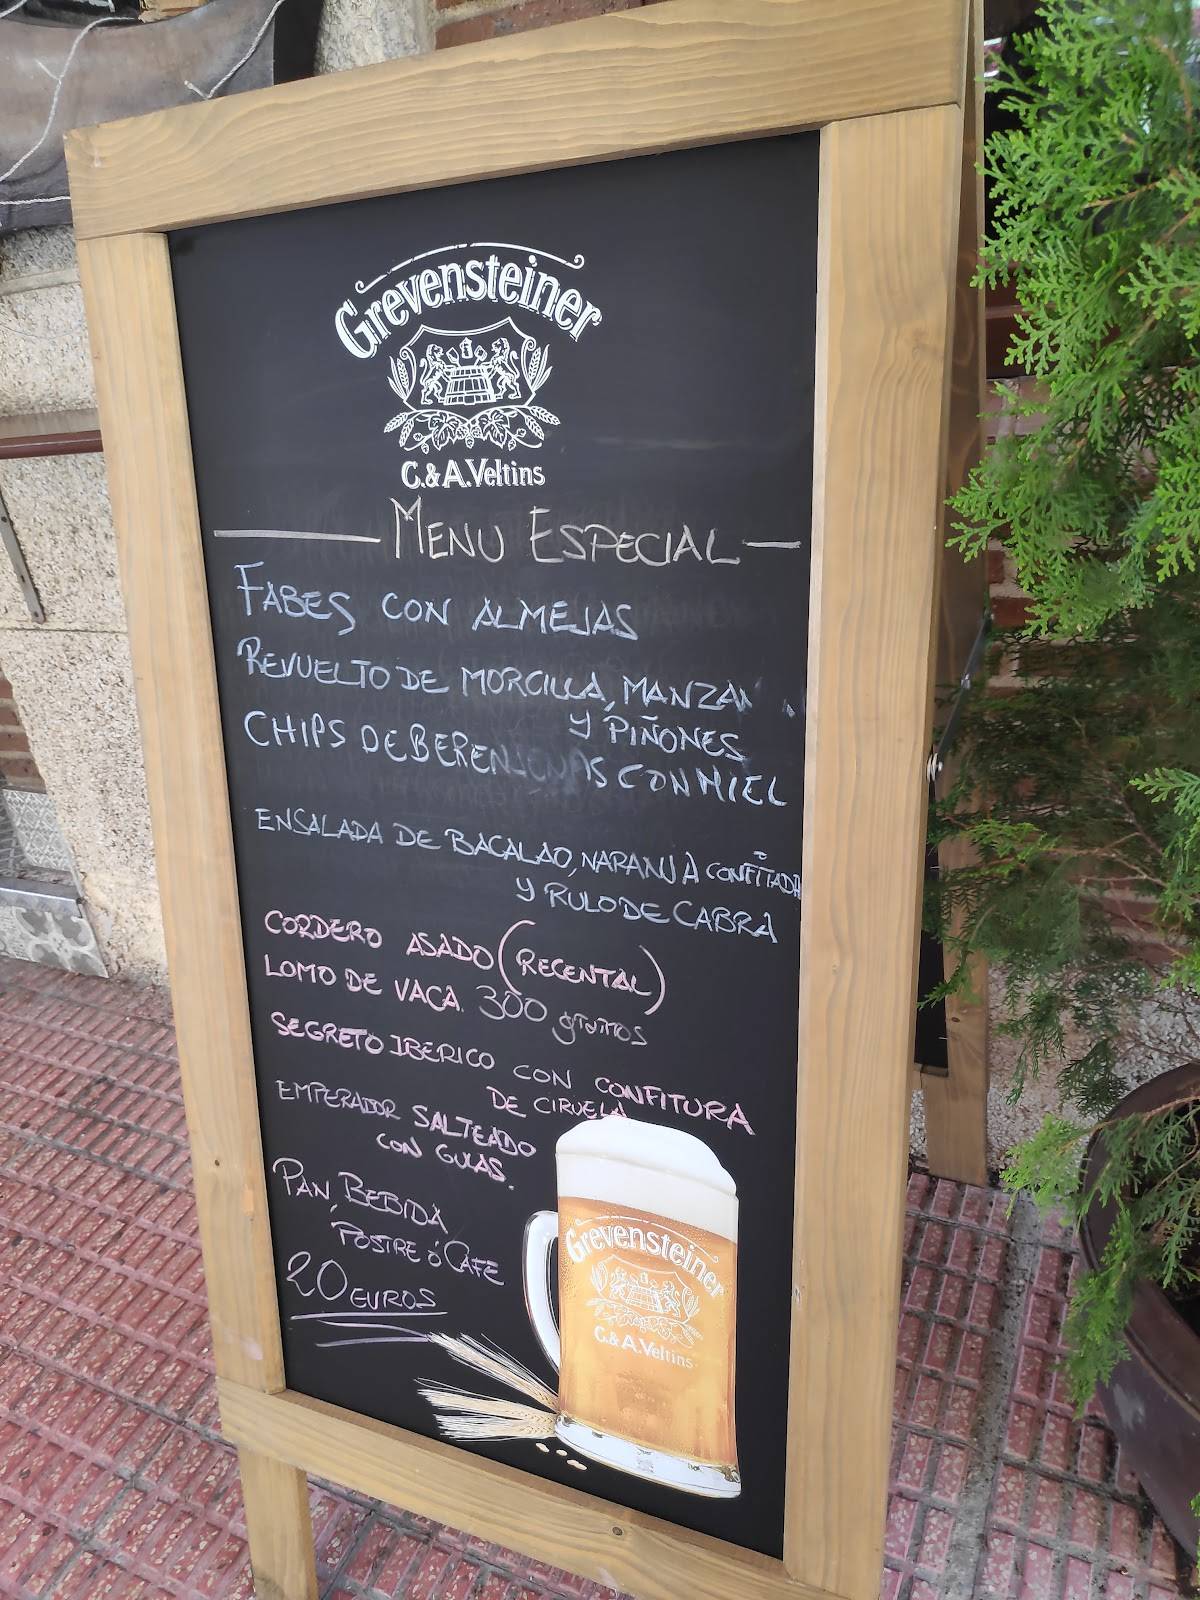 Grevensteiner
C.&A.Veltins
MENU ESPECIAL
FABES CON ALMEJAS
REVUELTO DE MORCILLA, MANZAN
Y PIÑONES
CHIPS DE BERENJENAS CON MIEL
ENSALADA DE BACALAO, NARANJA CONFITADA
Y RULO DE CABRA
CORDERO ASADO (RECENTAL)
LOMO DE VACA. 300 gramos
SEGRETO IBERICO CON CONFITURA
DE CIRUELA
EMPERADOR SALTEADO
CON GULAS.
PAN, BEBIDA
POSTRE ó CAFE
20 EUROS
Grevensteiner
C.&A.Veltins